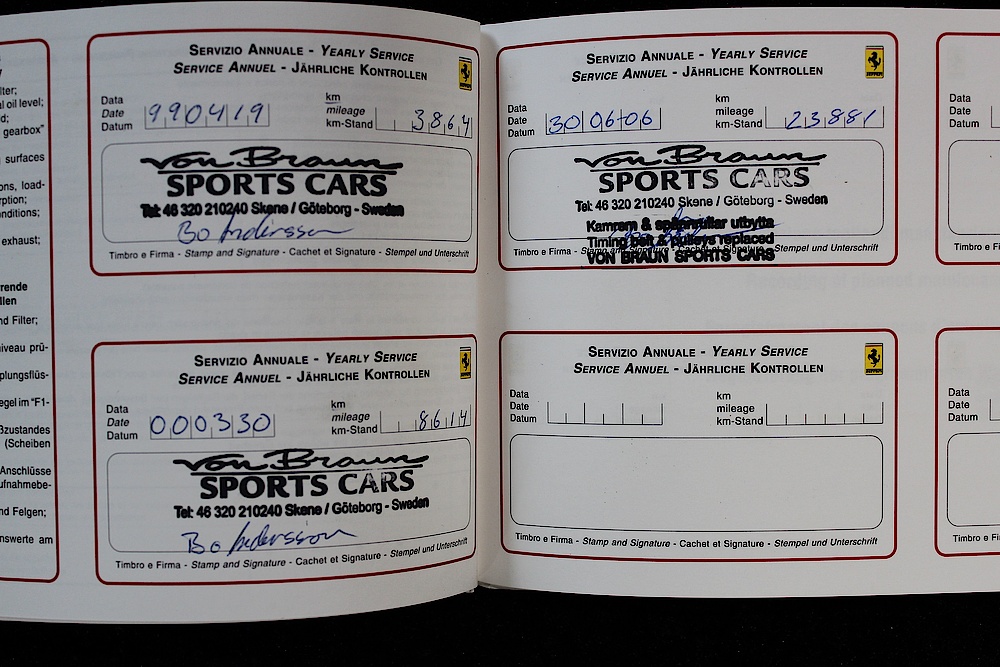 lter;
al oil level;
d;
gearbox"
surfaces
ons, load-
rption;
nditions;
exhaust;
rende
llen
nd Filter;
iveau prü-
plungsflüs-
egel im "F1-
ßzustandes
(Scheiben
Anschlüsse
ufnahmebe-
nd Felgen;
nswerte am
SERVIZIO ANNUALE - YEARLY SERVICE
SERVICE ANNUEL - JÄHRLICHE KONTROLLEN
Ferrari
Data
Date
Datum
990419
km
mileage
km-Stand
3864
von Braun
SPORTS CARS
Tel: 46 320 210240 Skene / Göteborg - Sweden
Bo Andersson
Timbro e Firma - Stamp and Signature - Cachet et Signature - Stempel und Unterschrift
SERVIZIO ANNUALE - YEARLY SERVICE
SERVICE ANNUEL - JÄHRLICHE KONTROLLEN
Ferrari
Data
Date
Datum
000330
km
mileage
km-Stand
8614
von Braun
SPORTS CARS
Tel: 46 320 210240 Skene / Göteborg - Sweden
Bo Andersson
Timbro e Firma - Stamp and Signature - Cachet et Signature - Stempel und Unterschrift
SERVIZIO ANNUALE - YEARLY SERVICE
SERVICE ANNUEL - JÄHRLICHE KONTROLLEN
Ferrari
Data
Date
Datum
300606
km
mileage
km-Stand
23881
von Braun
SPORTS CARS
Tel: 46 320 210240 Skene / Göteborg - Sweden
Kamrem & spännrullar utbytta
Timing belt & pulleys replaced
Timbro e Firma - Stamp and Signature - Cachet et Signature - Stempel und Unterschrift
VON BRAUN SPORTS CARS
SERVIZIO ANNUALE - YEARLY SERVICE
SERVICE ANNUEL - JÄHRLICHE KONTROLLEN
Ferrari
Data
Date
Datum
km
mileage
km-Stand
Timbro e Firma - Stamp and Signature - Cachet et Signature - Stempel und Unterschrift
Data
Date
Datum
Timbro e Fi
Data
Date
Datum
Timbro e Fi